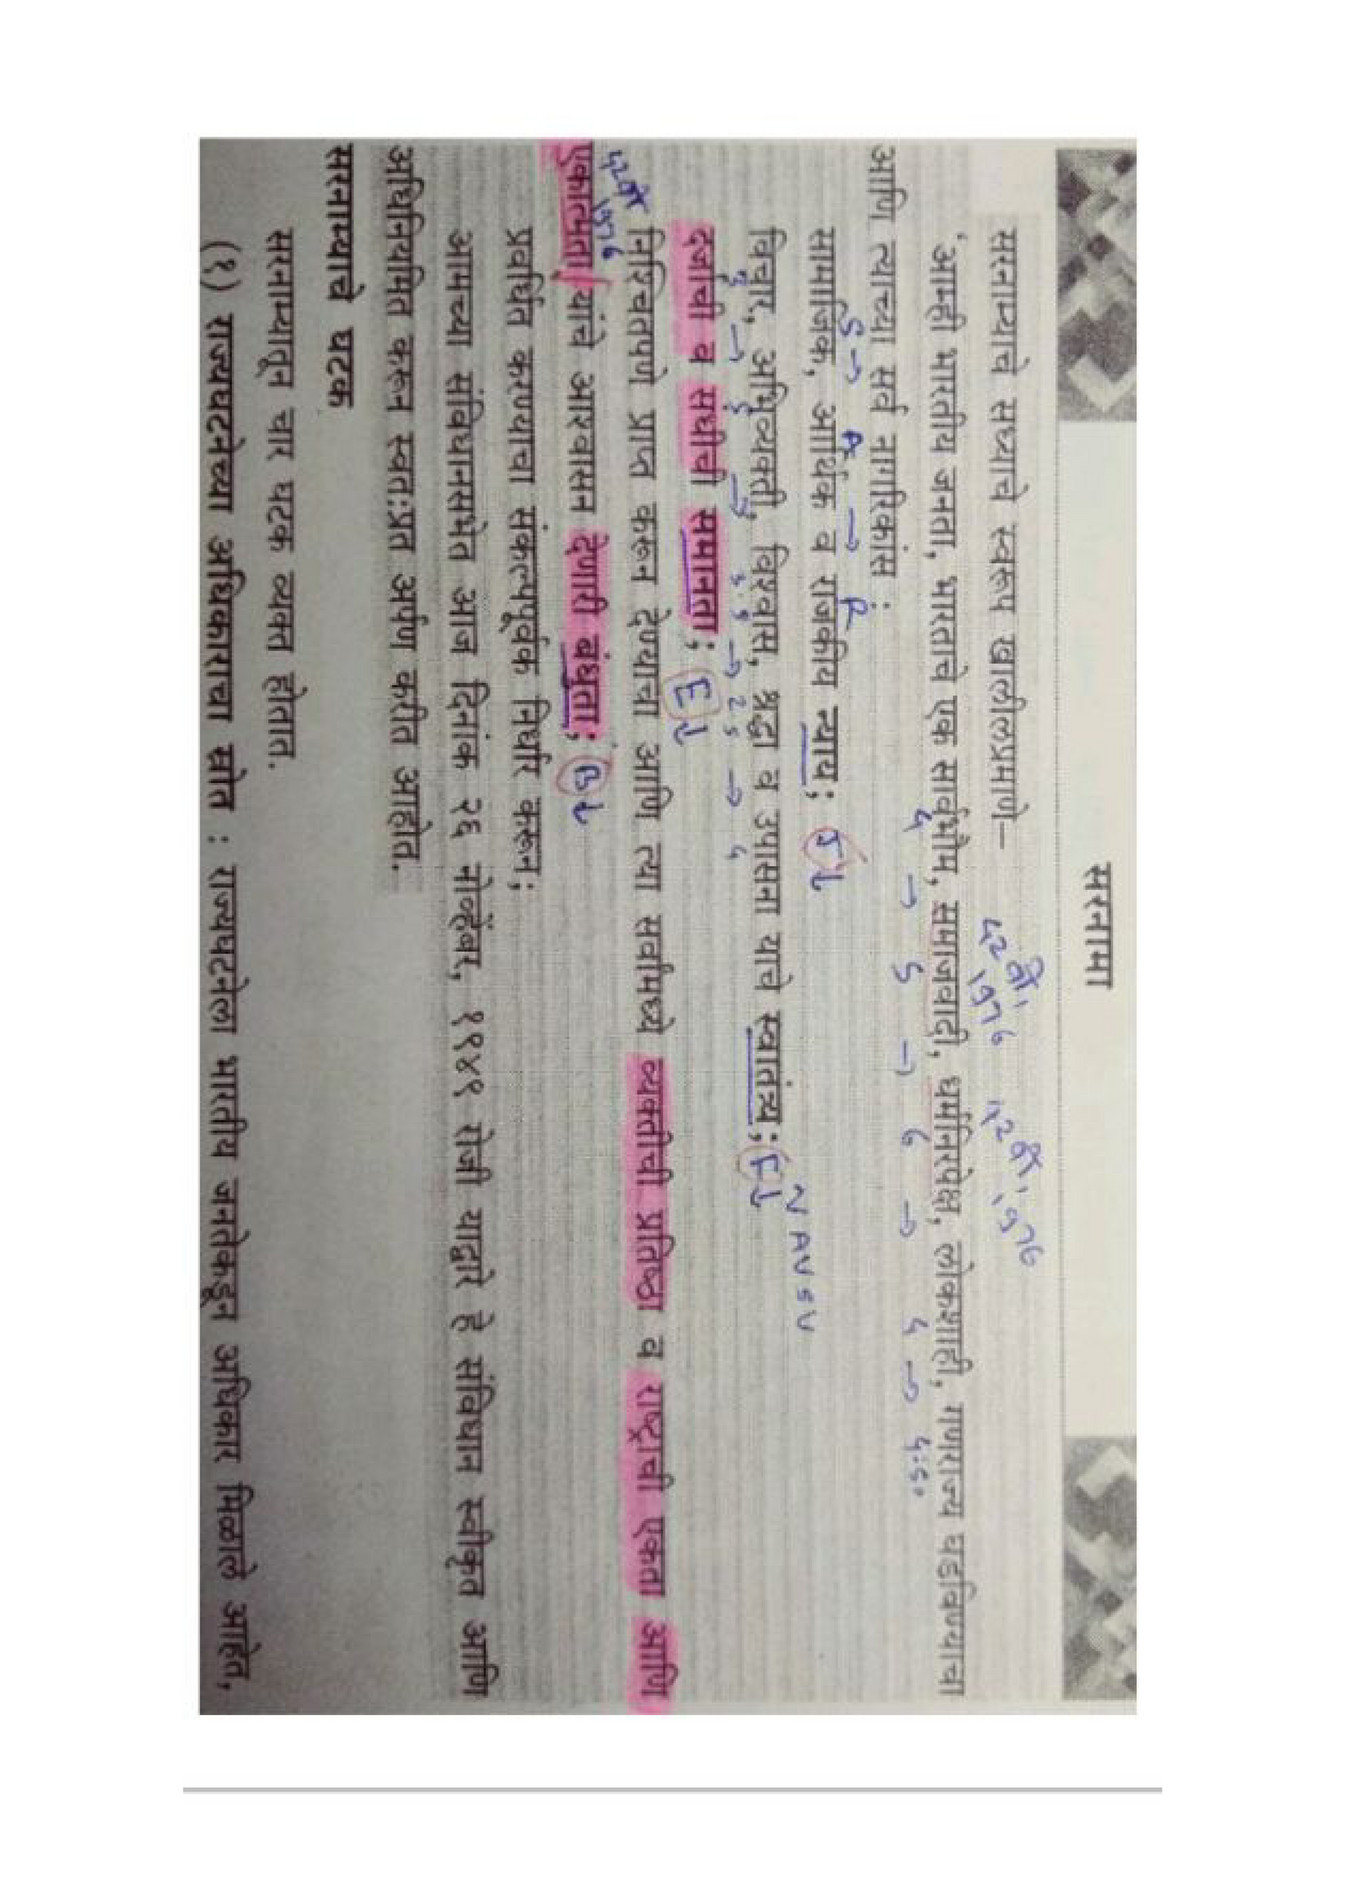 सरनामा
सरनाम्याचे सध्याचे स्वरूप खालीलप्रमाणे—
42 वी, 1976 42 वी, 1976
'आम्ही भारतीय जनता, भारताचे एक सार्वभौम, समाजवादी, धर्मनिरपेक्ष, लोकशाही, गणराज्य घडविण्याचा
4 → 5 → 6 → 4 →
आणि त्याच्या सर्व नागरिकांस :
S → A → R
सामाजिक, आर्थिक व राजकीय न्याय; J↓
VAVSU
विचार, अभिव्यक्ती, विश्वास, श्रद्धा व उपासना याचे स्वातंत्र्य; F↓
दर्जाची व संधीची समानता; E↓
निश्चितपणे प्राप्त करून देण्याचा आणि त्या सर्वांमध्ये व्यक्तीची प्रतिष्ठा व राष्ट्राची एकता आणि
42वी 1976
एकात्मता यांचे आश्वासन देणारी बंधुता; B↓
प्रवर्धित करण्याचा संकल्पपूर्वक निर्धार करून;
आमच्या संविधानसभेत आज दिनांक २६ नोव्हेंबर, १९४९ रोजी याद्वारे हे संविधान स्वीकृत आणि
अधिनियमित करून स्वतःप्रत अर्पण करीत आहोत.
सरनाम्याचे घटक
सरनाम्यातून चार घटक व्यक्त होतात.
(१) राज्यघटनेच्या अधिकाराचा स्रोत : राज्यघटनेला भारतीय जनतेकडून अधिकार मिळाले आहेत,